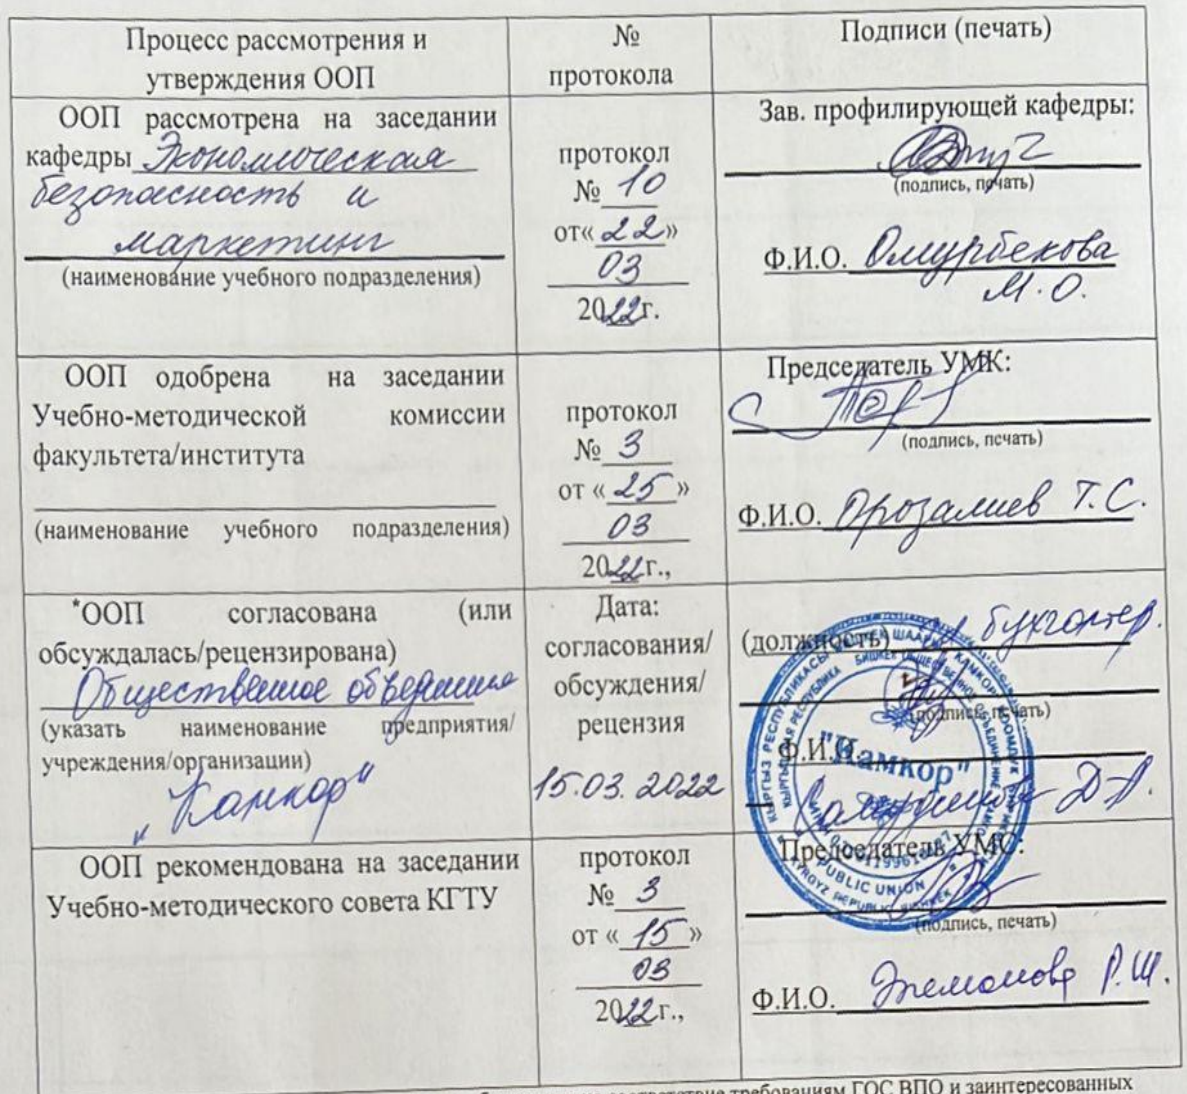 Процесс рассмотрения и
утверждения ООП
№
протокола
Подписи (печать)
ООП рассмотрена на заседании
кафедры Экономическая
безопасность и
маркетинг
(наименование учебного подразделения)
протокол
№ 10
от« 22»
03
2022г.
Зав. профилирующей кафедры:
(подпись, печать)
Ф.И.О. Омурбекова
М.О.
ООП одобрена на заседании
Учебно-методической комиссии
факультета/института
(наименование учебного подразделения)
протокол
№ 3
от « 25 »
03
2022г.,
Председатель УМК:
(подпись, печать)
Ф.И.О. Орозалиев Т.С.
*ООП согласована (или
обсуждалась/рецензирована)
Общественное объединение
(указать наименование предприятия/
учреждения/организации)
"Камкор"
Дата:
согласования/
обсуждения/
рецензия
15.03.2022
(должность) бухгалтер.
(подпись, печать)
Ф.И.О.
"Камкор"
PUBLIC UNION
KYRGYZ REPUBLIC BISHKEK
ООП рекомендована на заседании
Учебно-методического совета КГТУ
протокол
№ 3
от « 15 »
03
2022г.,
Председатель УМС:
(подпись, печать)
Ф.И.О. Элеманова Р.Ш.
требованиям ГОС ВПО и заинтересованных